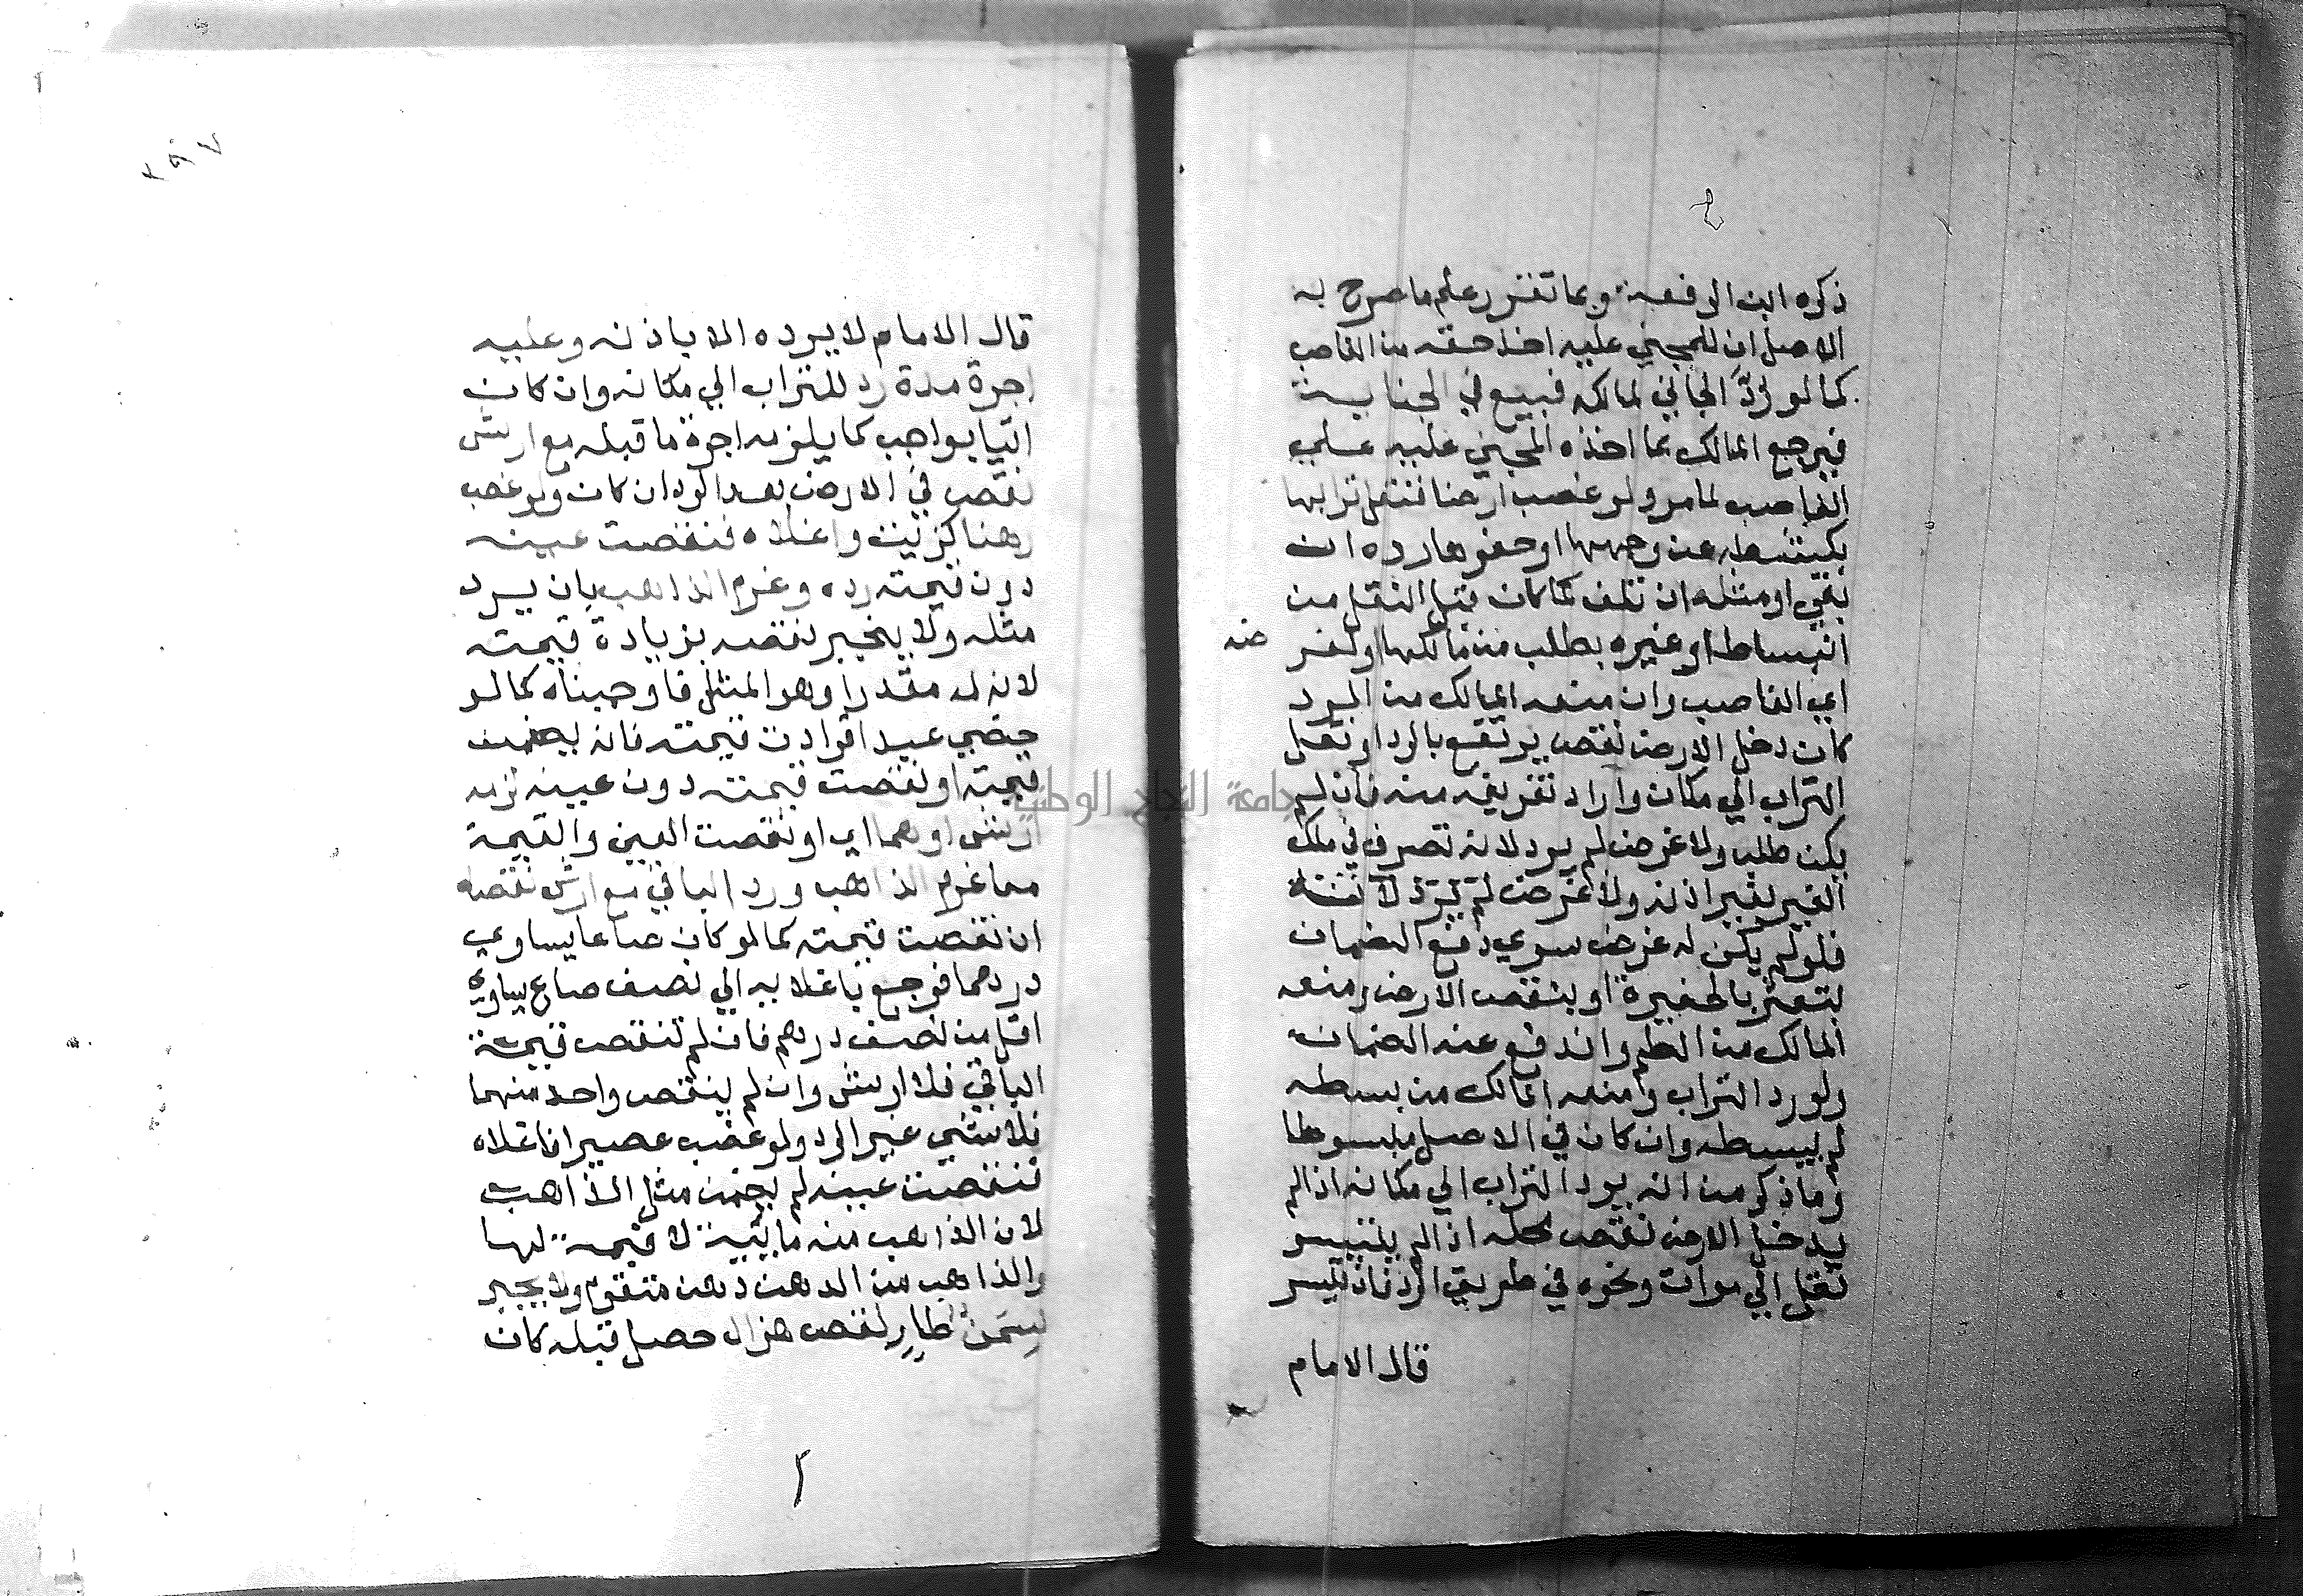 ذكره ابن الرفعة وبما تقرر علم ما صرح به
الاصل ان للمجني عليه اخذ حقه من الغاصب
كما لو رد الجاني لمالكه فبيع في الجناية
فيرجع المالك بما اخذه المجني عليه علي
الغاصب لما مر ولو غصب ارضا فنقل ترابها
بكشطه عن وجهها او حفرها رده ان
بقي او مثله ان تلف كما كان قبل النقل من
انبساط او غيره بطلب من مالكها او لغرضه
اي الغاصب وان منعه المالك من الرد
كان دخل الارض نقص يرتفع بالرد او نقل
التراب الي مكان واراد تفريغه منه فان لم
يكن طلب ولا غرض لم يرد لانه تصرف في ملك
الغير بغير اذنه ولا غرض لم يرد
فلو لم يكن له غرض سوي دفع الضمان
بتعثر بالحفيرة او بنقص الارض ومنعه
المالك من الطم واندفع عنه الضمان
ولو رد التراب ومنعه المالك من بسطه
لم يبسطه وان كان في الاصل مبسوطا
وما ذكر من انه يرد التراب الي مكانه اذا لم
يدخل الارض نقص محله اذا لم يتيسر
نقل الي موات ونحوه في طريق الرد فان تيسر
قال الامام
٣٩٧
قال الامام لا يرده الا باذنه وعليه
اجرة مدة رد للتراب الي مكانه وان كان
اتيا بواجب كما يلزمه اجرة ما قبله مع ارش
نقص في الارض بعد الرد ان كان ولو غصب
دهنا كزيت واغلاه فنقصت عينه
دون قيمته رده وغرم الذاهب بان يرد
مثله ولا ينجبر نقصه بزيادة قيمته
لانه له مقدرا وهو المثل فاوجبناه كما لو
خصي عبدا فزادت قيمته فانه يضمن
قيمته او نقصت قيمته دون عينه لزمه
ارش او هما اي او نقصت العين والقيمة
معا غرم الذاهب ورد الباقي مع ارش نقصه
ان نقصت قيمته كما لو كان صاعا يساوي
درهما فرجع باغلائه الي نصف صاع يساوي
اقل من نصف درهم فان لم تنقص قيمة
الباقي فلا ارش وان لم ينقص واحد منهما
فلا شي غير الرد ولو غصب عصيرا فاغلاه
فنقصت عينه لم يضمن مثل الذاهب
لان الذاهب منه مائية لا قيمة لها
والذاهب من الدهن دهن متقوم ولا يجبر
سمن طار نقص هزال حصل قبله كان
جامعة النجاح الوطنية